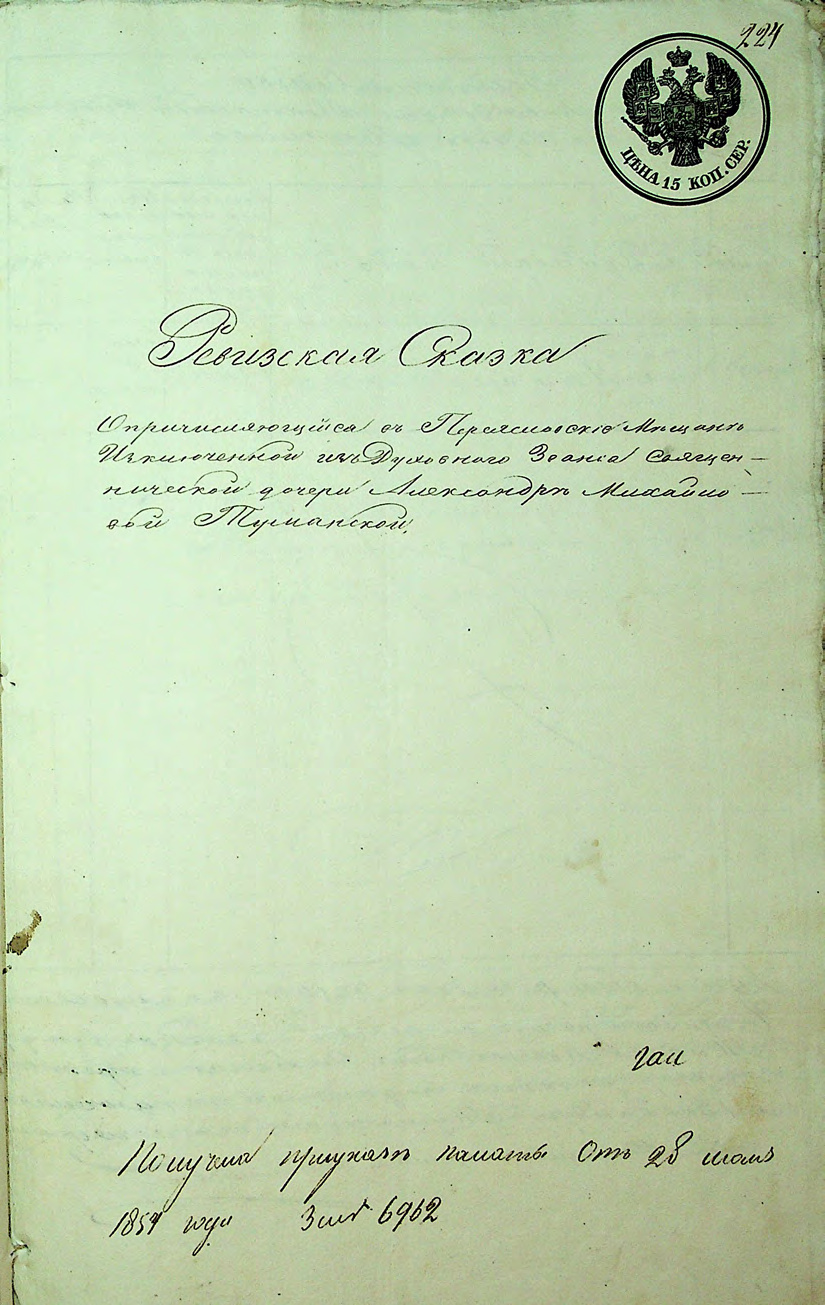 224
ЦѢНА 15 КОП. СЕР.
Ревизская Сказка
О причисляющейся въ Переясловскіе Мѣщане
Изключенной изъ Духовного Званія священ-
нической дочери Александрѣ Михайло-
вой Туманской.
Получена при указѣ палаты отъ 28 іюля
года 6962